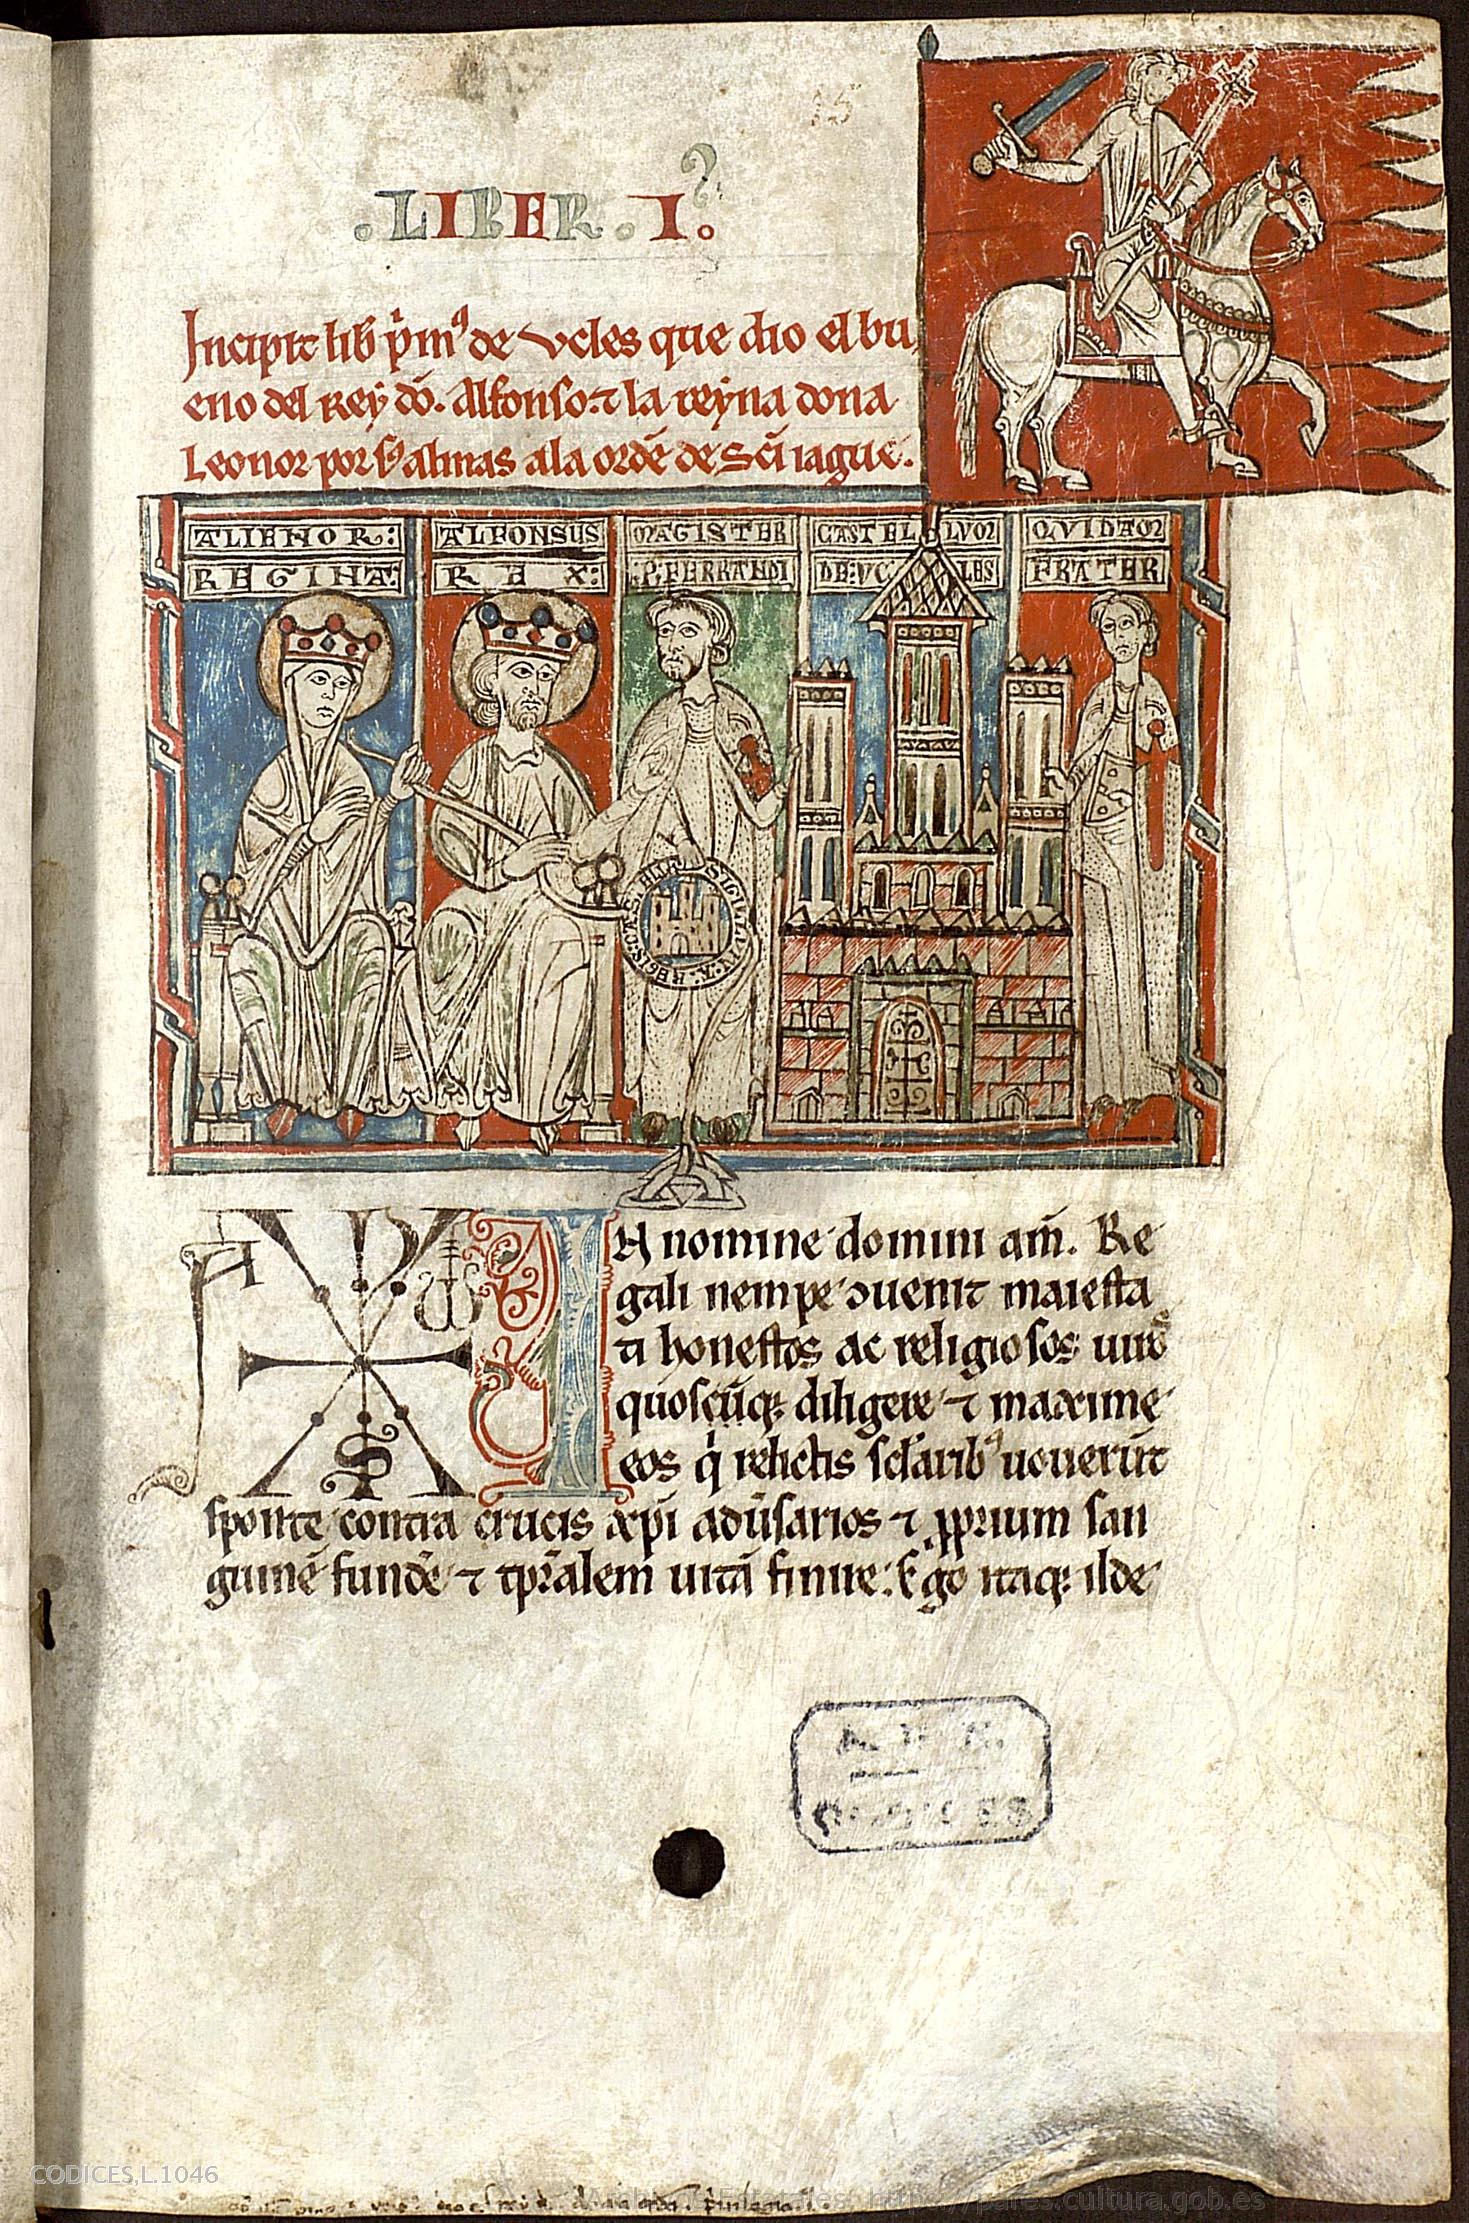 .LIBER.I.
Incipit lib̃ p̃m⁹ de vcles que dio el bu
eno del Rey dõ. Alfonso. ⁊ la reyna dona
Leonor por s⁹ almas ala ordẽ de Sc̃i iague.
ALIENOR:
REGINA:
ALFONSUS
REX:
MAGISTER
:P:FERRANDI
CASTELLVM
DE:VCLES
QVIDAM
FRATER
SIGILLVM REGIS CASTELLE
A ω
IN nomine domini am̃. Re
gali nempe ɔuenit maiesta
ti honestos ac religiosos uiros
quoscũq; diligere ⁊ maxime
eos q̇ relictis sc̃larib⁹ uouerũt
sponte contra crucis xp̃i adũsarios ⁊ ꝓprium san
guinẽ fundẽ ⁊ tp̃ralem uitã finire. Ego itaq; ilde
CODICES
CODICES,L.1046
http://pares.cultura.gob.es